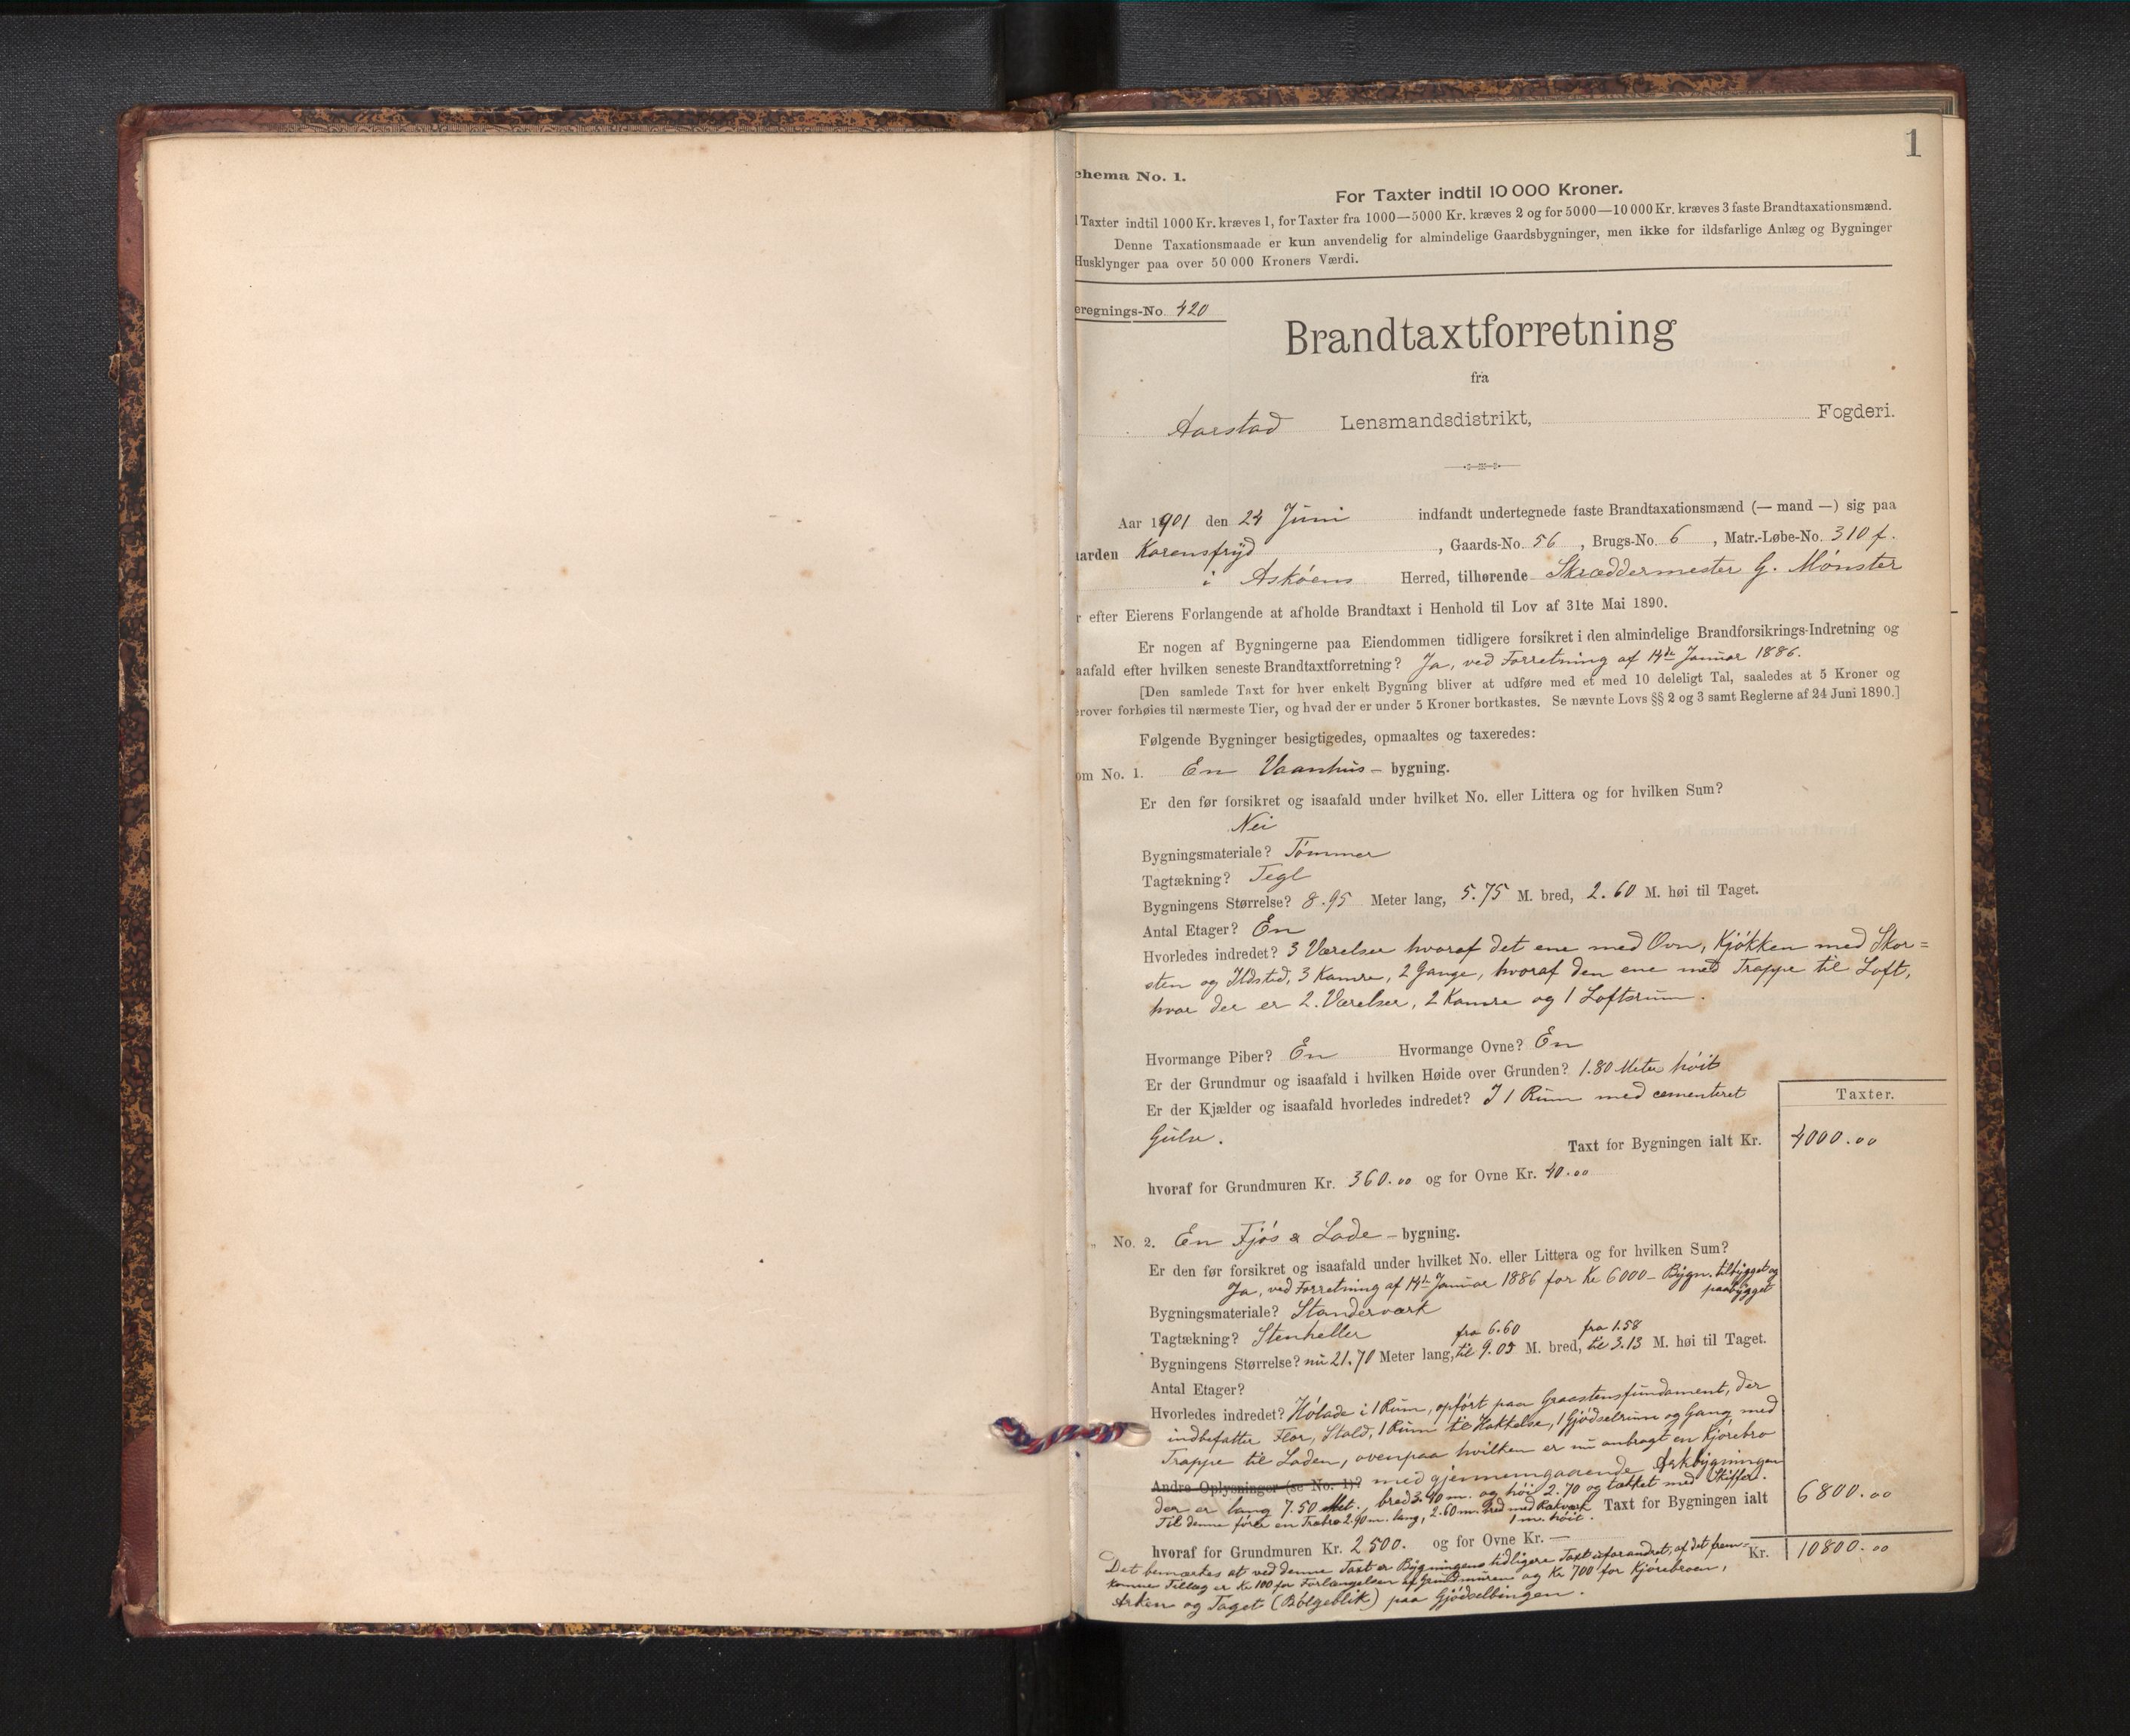 1
chema No. 1.
For Taxter indtil 10 000 Kroner.
Taxter indtil 1000 Kr. kræves 1, for Taxter fra 1000—5000 Kr. kræves 2 og for 5000—10 000 Kr. kræves 3 faste Brandtaxationsmænd.
Denne Taxationsmaade er kun anvendelig for almindelige Gaardsbygninger, men ikke for ildsfarlige Anlæg og Bygninger
Husklynger paa over 50 000 Kroners Værdi.
eregnings-No. 420
Brandtaxtforretning
fra
Aarstad Lensmandsdistrikt, Fogderi.
Aar 1901 den 24 Juni indfandt undertegnede faste Brandtaxationsmænd (— mand —) sig paa
aarden Karensfryd, Gaards-No. 56, Brugs-No. 6, Matr.-Løbe-No. 310 f.
i Askøens Herred, tilhørende Skræddermester G. Mønster
r efter Eierens Forlangende at afholde Brandtaxt i Henhold til Lov af 31te Mai 1890.
Er nogen af Bygningerne paa Eiendommen tidligere forsikret i den almindelige Brandforsikrings-Indretning og
aafald efter hvilken seneste Brandtaxtforretning? Ja, ved Forretning af 14de Januar 1886.
[Den samlede Taxt for hver enkelt Bygning bliver at udføre med et med 10 deleligt Tal, saaledes at 5 Kroner og
erover forhøies til nærmeste Tier, og hvad der er under 5 Kroner bortkastes. Se nævnte Lovs §§ 2 og 3 samt Reglerne af 24 Juni 1890.]
Følgende Bygninger besigtigedes, opmaaltes og taxeredes:
om No. 1. En Vaanhus - bygning.
Er den før forsikret og isaafald under hvilket No. eller Littera og for hvilken Sum?
Nei
Bygningsmateriale? Tømmer
Tagtækning? Tegl
Bygningens Størrelse? 8.95 Meter lang, 5.75 M. bred, 2.60 M. høi til Taget.
Antal Etager? En
Hvorledes indredet? 3 Værelser hvoraf det ene med Ovn, Kjøkken med Skor=
sten og Ildsted, 3 Kamre, 2 Gange, hvoraf den ene med Trappe til Loft,
hvor der er 2. Værelser, 2 Kamre og 1 Loftsrum.
Hvormange Piber? En Hvormange Ovne? En
Er der Grundmur og isaafald i hvilken Høide over Grunden? 1.80 Meter høit
Er der Kjælder og isaafald hvorledes indredet? I 1 Rum med cementeret
Gulv.
Taxter.
Taxt for Bygningen ialt Kr. 4000.00
hvoraf for Grundmuren Kr. 360.00 og for Ovne Kr. 40.00
„ No. 2. En Fjøs & Lade - bygning.
Er den før forsikret og isaafald under hvilket No. eller Littera og for hvilken Sum?
Ja, ved Forretning af 14de Januar 1886 for Kr 6000 - Bygn. tilbygget og
paabygget
Bygningsmateriale? Standerværk
Tagtækning? Stenheller fra 6.60 fra 1.58
Bygningens Størrelse? nu 21.70 Meter lang, til 9.05 M. bred, til 3.13 M. høi til Taget.
Antal Etager?
Hvorledes indredet? Hølade i 1 Rum, opført paa Graastensfundament, der
indbefatter Flor, Stald, 1 Rum til Hakkelse, 1 Gjødselrum og Gang, med
Trappe til Laden, ovenpaa hvilken er nu anbragt en Kjørebro
Andre Oplysninger (se No. 1)? med gjennemgaaende Arkbygningen
der er lang 7.50 Met., bred 3.40 m. og høi 2.70 og tækket med Skiffer.
Til denne fører en Træbro 2.90 m. lang, 2.60 m. bred med Rækværk
1 m. høit.
Taxt for Bygningen ialt 6800.00
hvoraf for Grundmuren Kr. 2500. og for Ovne Kr. —
Kr. 10800.00
Det bemærkes at ved denne Taxt er Bygningens tidligere Taxt uforandret, af det frem-
komne Tillæg er Kr 100 for Forlængelsen af Grundmurene og Kr 700 for Kjørebroen,
Arken og Taget (Bølgeblik) paa Gjødselbingen.